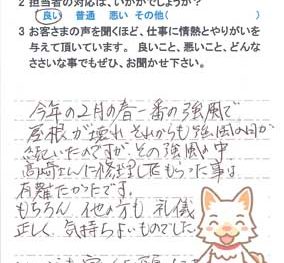 2 担当者の対応は、いかがでしょうか？
良い 普通 悪い その他( )
3 お客さまの声を聞くほど、仕事に情熱とやりがいを
与えて頂いています。 良いこと、悪いこと、どんな
ささいな事でもぜひ、お聞かせ下さい。
今年の2月の春一番の強風で
屋根が壊れ それからも強風の日が
続いたのですが、その強風の中
高崎さんに修理してもらった事は
有難たかったです。
もちろん 他の方も 礼儀
正しく 気持ちよいものでした